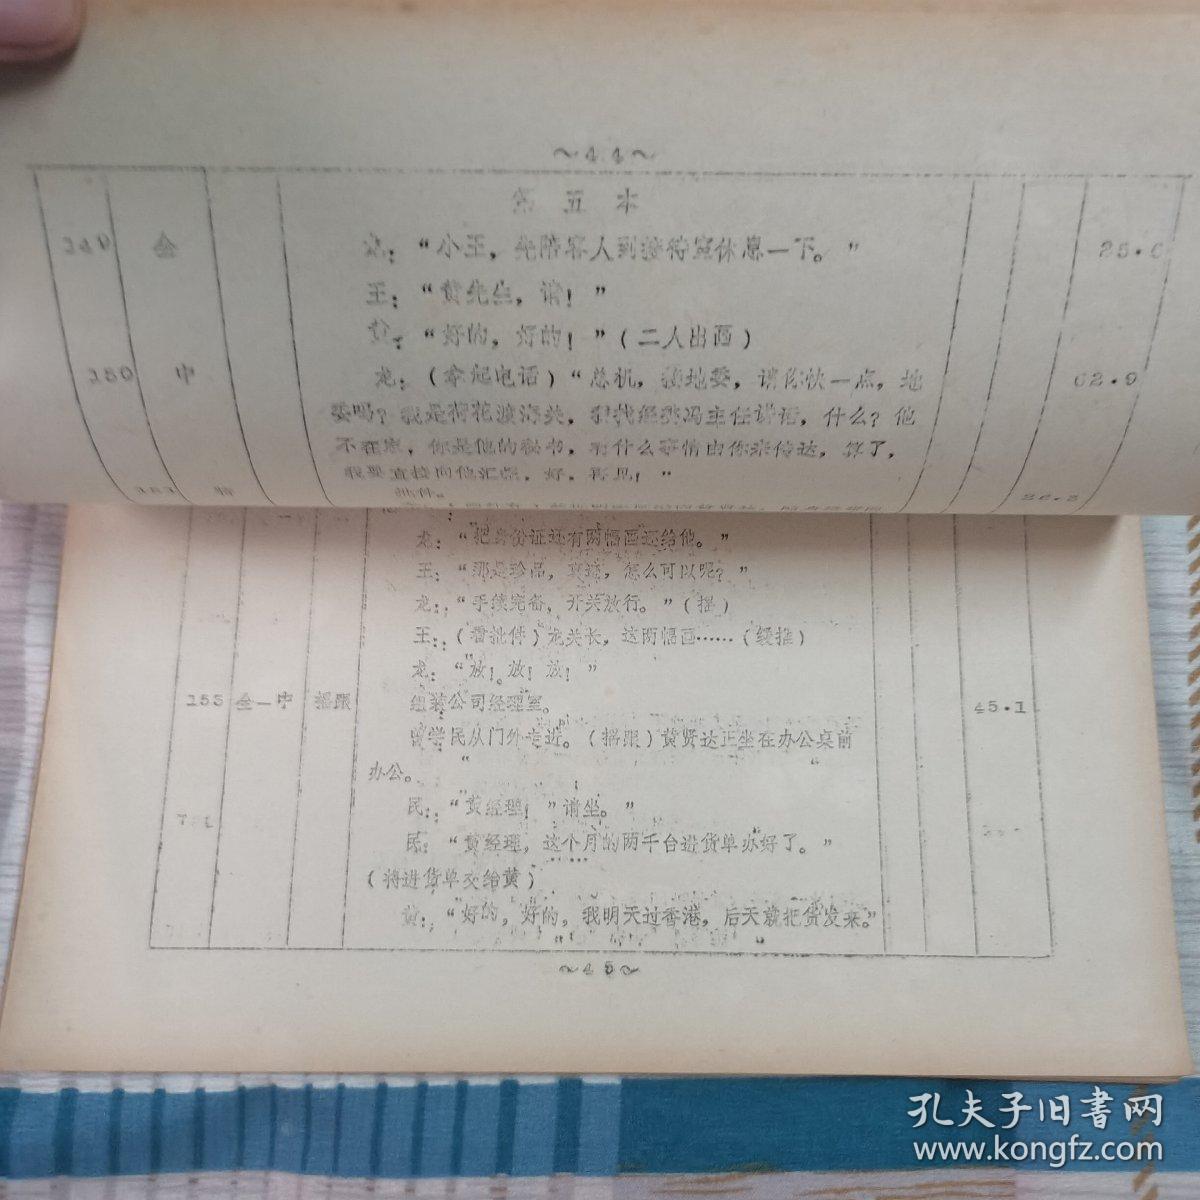 ～44～
第五本
149 全 龙：“小王，先陪客人到接待室休息一下。” 25.6
王：“黄先生，请！”
黄：“好的，好的！”（二人出画）
150 中 龙：（拿起电话）“总机，接地委，请你快一点，地 62.9
委吗？我是荷花渡海关，我找经委冯主任讲话，什么？他
不在家，你是他的秘书，有什么事情由你来传达，算了，
我要直接向他汇报，好，再见！”
151 特 批件。
龙：“把身份证还有两幅画还给他。”
王：“那是珍品，真迹，怎么可以呢？”
龙：“手续完备，开关放行。”（摇）
王：（看批件）龙关长，这两幅画……（缓推）
龙：“放！放！放！”
153 全—中 摇跟 组装公司经理室。 45.1
曾学民从门外走进。（摇跟）黄贤达正坐在办公桌前
办公。
民：“黄经理！”请坐。”
民：“黄经理，这个月的两千台进货单办好了。”
（将进货单交给黄）
黄：“好的，好的，我明天过香港，后天就把货发来。”
～45～
孔夫子旧书网
www.kongfz.com